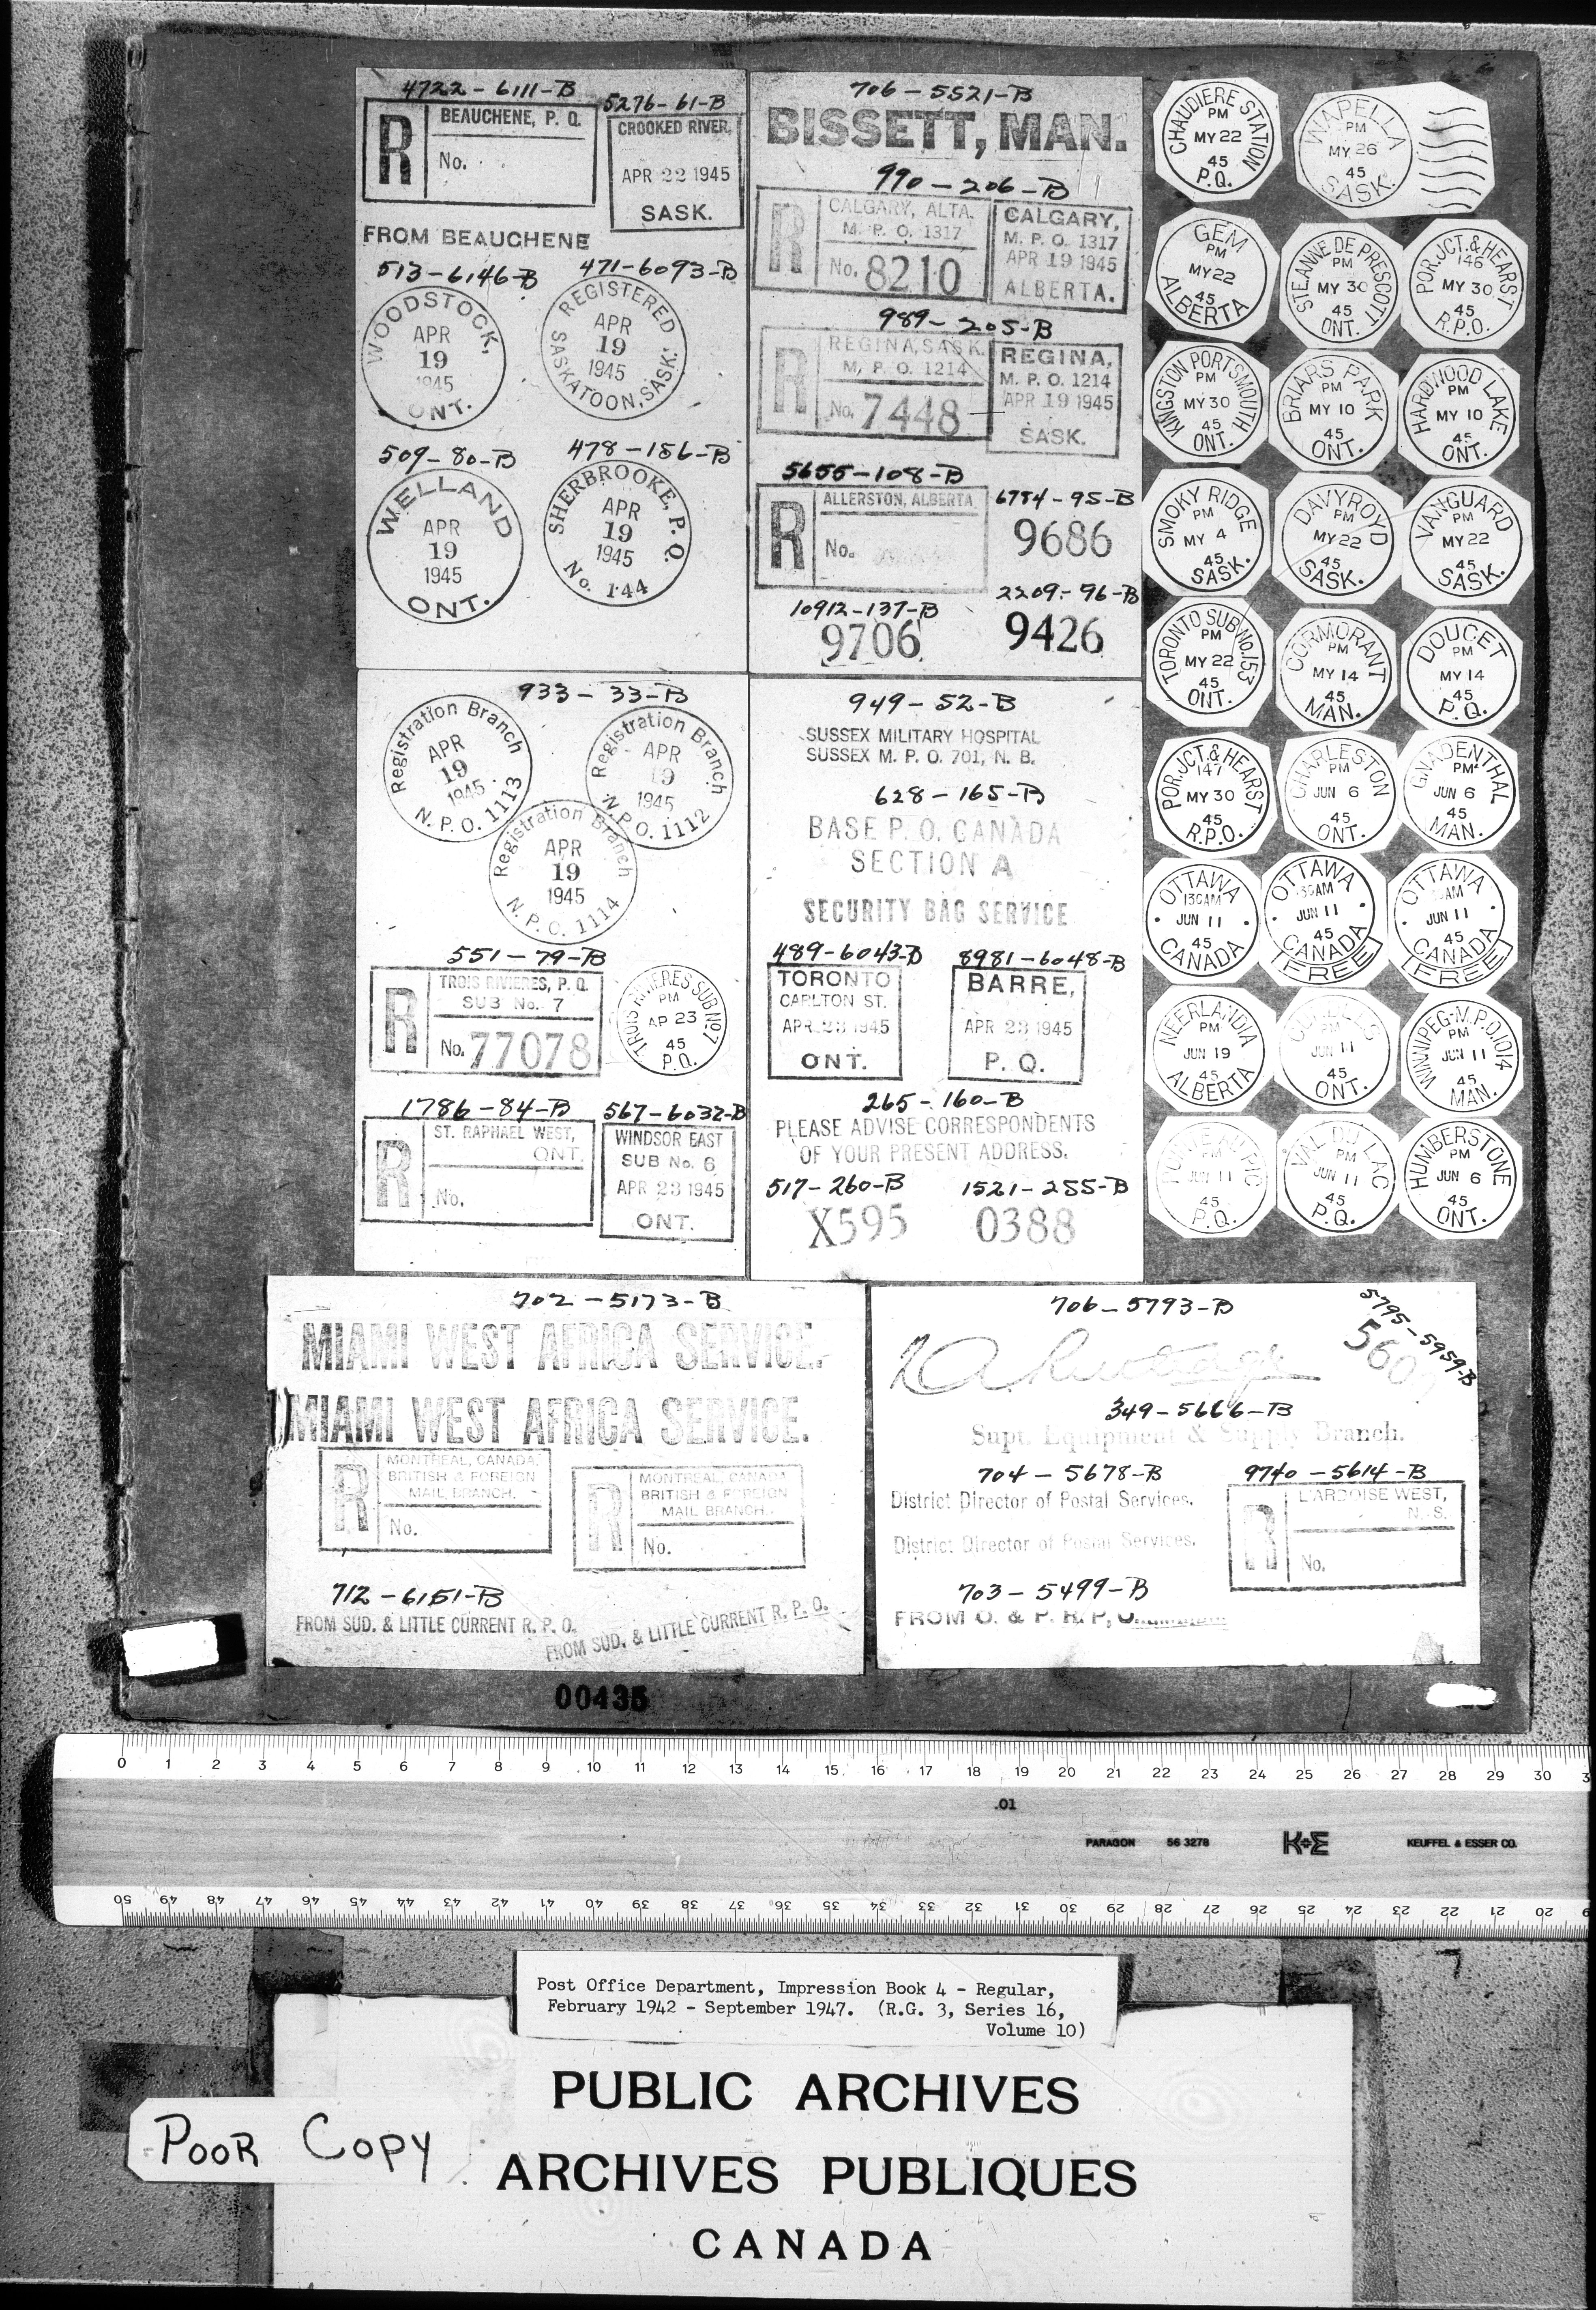 4722-6111-B
R
BEAUCHENE, P. Q.
No.
5276-61-B
CROOKED RIVER,
APR 22 1945
SASK.
FROM BEAUCHENE
513-6146-B
WOODSTOCK,
APR
19
1945
ONT.
471-6093-B
REGISTERED
APR
19
1945
SASKATOON, SASK.
509-80-B
WELLAND
APR
19
1945
ONT.
478-186-B
SHERBROOKE, P. Q.
APR
19
1945
No. 144
706-5521-B
BISSETT, MAN.
990-206-B
R
CALGARY, ALTA.
M. P. O. 1317
No. 8210
CALGARY,
M. P. O. 1317
APR 19 1945
ALBERTA.
989-205-B
R
REGINA, SASK.
M. P. O. 1214
No. 7448
REGINA,
M. P. O. 1214
APR 19 1945
SASK.
5655-108-B
R
ALLERSTON, ALBERTA
No.
6784-95-B
9686
10912-137-B
9706
2209-96-B
9426
933-33-B
Registration Branch
APR
19
1945
N. P. O. 1113
Registration Branch
APR
19
1945
N. P. O. 1112
Registration Branch
APR
19
1945
N. P. O. 1114
551-79-B
R
TROIS RIVIERES, P. Q.
SUB No. 7
No. 77078
TROIS RIVIERES SUB No. 7
PM
AP 23
45
P.Q.
1786-84-B
R
ST. RAPHAEL WEST,
ONT.
No.
567-6032-B
WINDSOR EAST
SUB No. 6
APR 23 1945
ONT.
949-52-B
SUSSEX MILITARY HOSPITAL
SUSSEX M. P. O. 701, N. B.
628-165-B
BASE P. O. CANADA
SECTION A
SECURITY BAG SERVICE
489-6043-B
TORONTO
CARLTON ST.
APR 23 1945
ONT.
8981-6048-B
BARRE,
APR 23 1945
P. Q.
265-160-B
PLEASE ADVISE CORRESPONDENTS
OF YOUR PRESENT ADDRESS.
517-260-B
X595
1521-255-B
0388
CHAUDIERE STATION
PM
MY 22
45
P.Q.
WAPELLA
PM
MY 26
45
SASK.
GEM
PM
MY 22
45
ALBERTA
STE ANNE DE PRESCOTT
PM
MY 30
45
ONT.
POR. JCT. & HEARST
146
MY 30
45
R.P.O.
KINGSTON PORTSMOUTH
PM
MY 30
45
ONT.
BRIARS PARK
PM
MY 10
45
ONT.
HARDWOOD LAKE
PM
MY 10
45
ONT.
SMOKY RIDGE
PM
MY 4
45
SASK.
DAVYROYD
PM
MY 22
45
SASK.
VANGUARD
PM
MY 22
45
SASK.
TORONTO SUB No. 153
PM
MY 22
45
ONT.
CORMORANT
PM
MY 14
45
MAN.
DOUCET
PM
MY 14
45
P.Q.
POR. JCT. & HEARST
147
MY 30
45
R.P.O.
CHARLESTON
PM
JUN 6
45
ONT.
GNADENTHAL
PM
JUN 6
45
MAN.
OTTAWA
130AM
JUN 11
45
CANADA
OTTAWA
JUN 11
45
CANADA
FREE
OTTAWA
AM
JUN 11
45
CANADA
FREE
NEERLANDIA
PM
JUN 19
45
ALBERTA
PM
JUN 11
45
ONT.
WINNIPEG-M.P.O. 1014
PM
JUN 11
45
MAN.
PM
JUN 11
45
P.Q.
VAL DU LAC
PM
JUN 11
45
P.Q.
HUMBERSTONE
PM
JUN 6
45
ONT.
702-5173-B
MIAMI WEST AFRICA SERVICE.
MIAMI WEST AFRICA SERVICE.
R
MONTREAL, CANADA.
BRITISH & FOREIGN
MAIL BRANCH.
No.
R
MONTREAL, CANADA
BRITISH & FOREIGN
MAIL BRANCH.
No.
712-6151-B
FROM SUD. & LITTLE CURRENT R. P. O.
FROM SUD. & LITTLE CURRENT R. P. O.
706-5793-B
5795-5959-B
560
349-5666-B
Supt. Equipment & Supply Branch.
704-5678-B
District Director of Postal Services.
District Director of Postal Services.
9740-5614-B
R
L'ARDOISE WEST,
N. S.
No.
703-5499-B
FROM O. & P. R. P. O.
00435
0 1 2 3 4 5 6 7 8 9 10 11 12 13 14 15 16 17 18 19 20 21 22 23 24 25 26 27 28 29 30
.01
PARAGON 56 3278 K+E KEUFFEL & ESSER CO.
50 49 48 47 46 45 44 43 42 41 40 39 38 37 36 35 34 33 32 31 30 29 28 27 26 25 24 23 22 21 20
Post Office Department, Impression Book 4 - Regular,
February 1942 - September 1947. (R.G. 3, Series 16,
Volume 10)
PUBLIC ARCHIVES
ARCHIVES PUBLIQUES
CANADA
POOR COPY